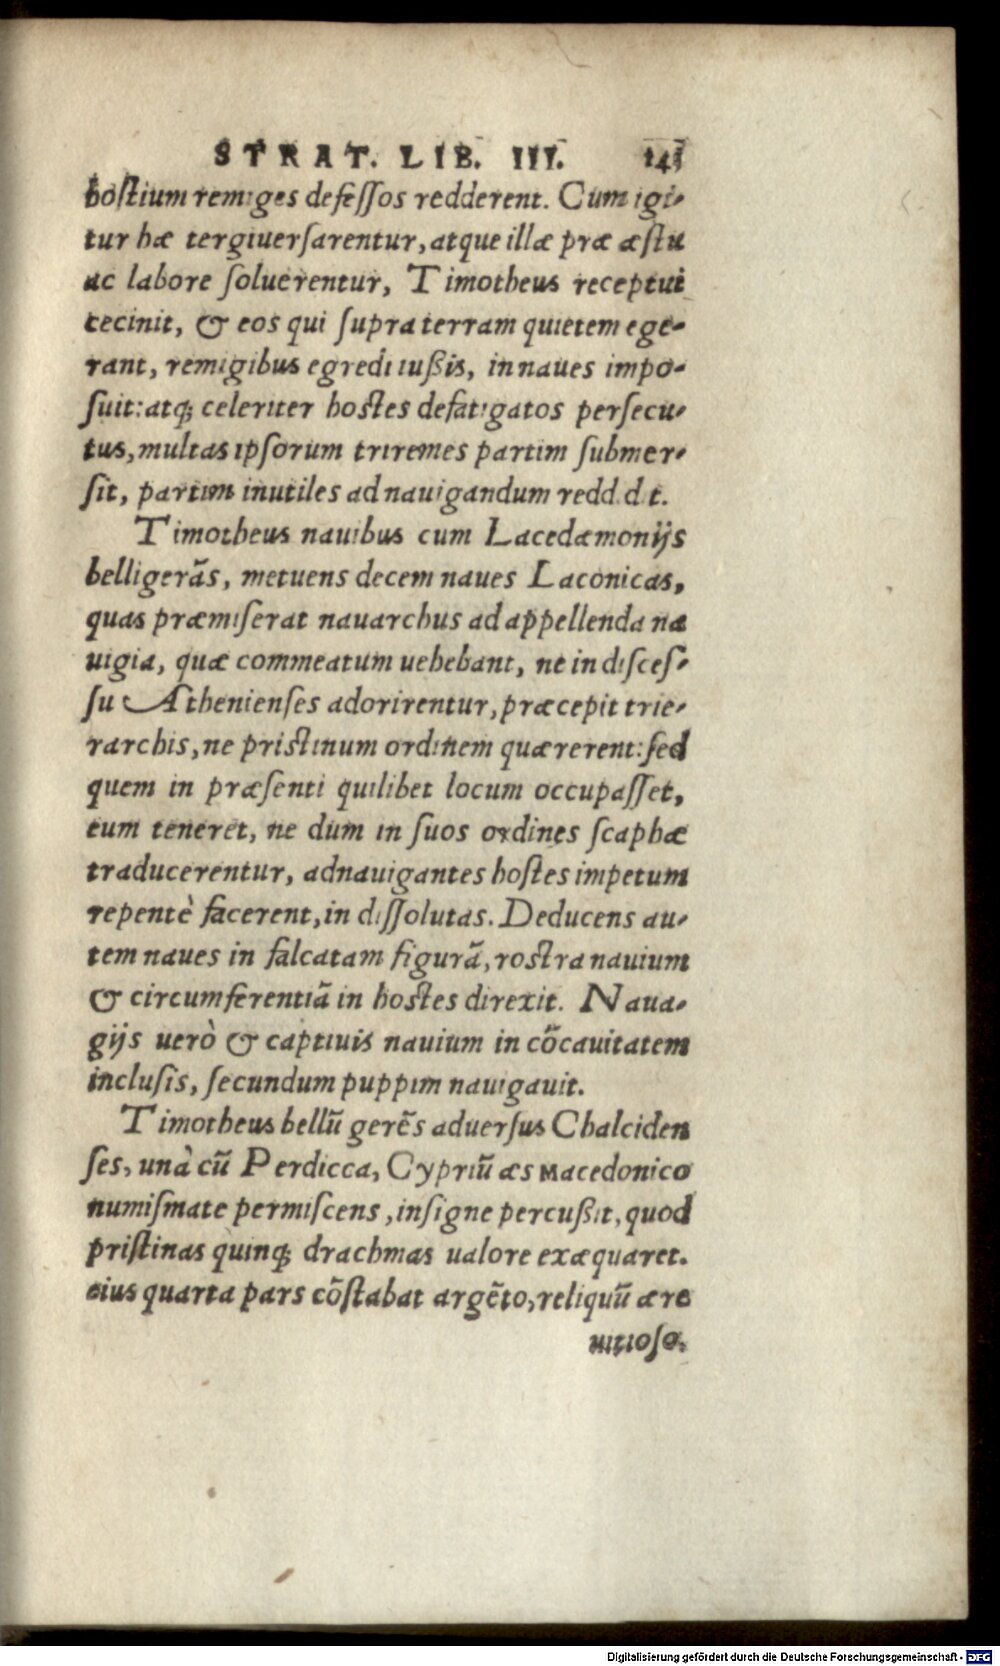 STRAT. LIB. III. 143
hostium remiges defessos redderent. Cum igi-
tur hæ tergiuersarentur, atque illæ præ æstu
ac labore soluerentur, Timotheus receptui
cecinit, & eos qui supra terram quietem ege-
rant, remigibus egredi iußis, in naues impo-
suit: atq; celeriter hostes defatigatos persecu-
tus, multas ipsorum triremes partim submer-
sit, partim inutiles ad nauigandum reddidit.
Timotheus nauibus cum Lacedæmonijs
belligerãs, metuens decem naues Laconicas,
quas præmiserat nauarchus ad appellenda na
uigia, quæ commeatum uehebant, ne in disces-
su Athenienses adorirentur, præcepit trie-
rarchis, ne pristinum ordinem quærerent: sed
quem in præsenti quilibet locum occupasset,
eum teneret, ne dum in suos ordines scaphæ
traducerentur, adnauigantes hostes impetum
repentè facerent, in dissolutas. Deducens au-
tem naues in falcatam figurã, rostra nauium
& circumferentiã in hostes direxit. Naua-
gijs uerò & captiuis nauium in cõcauitatem
inclusis, secundum puppim nauigauit.
Timotheus bellũ gerẽs aduersus Chalciden
ses, unà cũ Perdicca, Cypriũ æs macedonico
numismate permiscens, insigne percußit, quod
pristinas quinq; drachmas ualore exæquaret.
eius quarta pars cõstabat argẽto, reliquũ ære
uitioso.
Digitalisierung gefördert durch die Deutsche Forschungsgemeinschaft - DFG